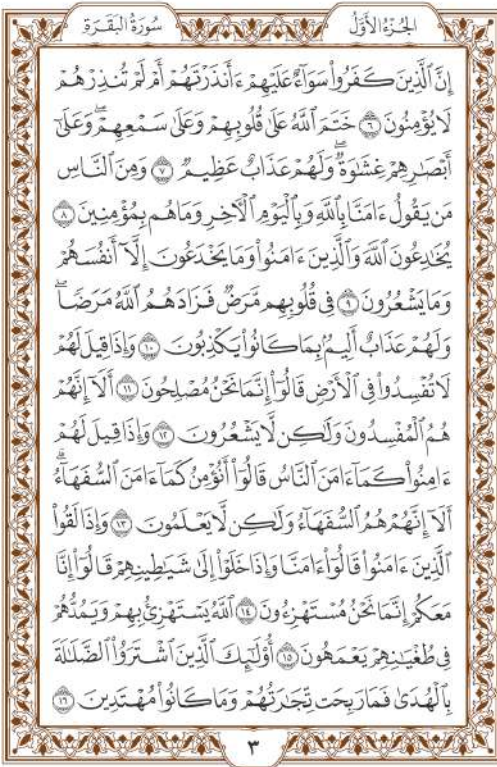 الجُزْءُ الأَوَّلُ
سُورَةُ البَقَرَةِ
إِنَّ ٱلَّذِينَ كَفَرُواْ سَوَآءٌ عَلَيْهِمْ ءَأَنذَرْتَهُمْ أَمْ لَمْ تُنذِرْهُمْ
لَا يُؤْمِنُونَ ٦ خَتَمَ ٱللَّهُ عَلَىٰ قُلُوبِهِمْ وَعَلَىٰ سَمْعِهِمْۖ وَعَلَىٰٓ
أَبْصَٰرِهِمْ غِشَٰوَةٌۖ وَلَهُمْ عَذَابٌ عَظِيمٌ ٧ وَمِنَ ٱلنَّاسِ
مَن يَقُولُ ءَامَنَّا بِٱللَّهِ وَبِٱلْيَوْمِ ٱلْأٓخِرِ وَمَا هُم بِمُؤْمِنِينَ ٨
يُخَٰدِعُونَ ٱللَّهَ وَٱلَّذِينَ ءَامَنُواْ وَمَا يَخْدَعُونَ إِلَّآ أَنفُسَهُمْ
وَمَا يَشْعُرُونَ ٩ فِى قُلُوبِهِم مَّرَضٌ فَزَادَهُمُ ٱللَّهُ مَرَضًاۖ
وَلَهُمْ عَذَابٌ أَلِيمٌۢ بِمَا كَانُواْ يَكْذِبُونَ ١٠ وَإِذَا قِيلَ لَهُمْ
لَا تُفْسِدُواْ فِى ٱلْأَرْضِ قَالُوٓاْ إِنَّمَا نَحْنُ مُصْلِحُونَ ١١ أَلَآ إِنَّهُمْ
هُمُ ٱلْمُفْسِدُونَ وَلَٰكِن لَّا يَشْعُرُونَ ١٢ وَإِذَا قِيلَ لَهُمْ
ءَامِنُواْ كَمَآ ءَامَنَ ٱلنَّاسُ قَالُوٓاْ أَنُؤْمِنُ كَمَآ ءَامَنَ ٱلسُّفَهَآءُۗ
أَلَآ إِنَّهُمْ هُمُ ٱلسُّفَهَآءُ وَلَٰكِن لَّا يَعْلَمُونَ ١٣ وَإِذَا لَقُواْ
ٱلَّذِينَ ءَامَنُواْ قَالُوٓاْ ءَامَنَّا وَإِذَا خَلَوْاْ إِلَىٰ شَيَٰطِينِهِمْ قَالُوٓاْ إِنَّا
مَعَكُمْ إِنَّمَا نَحْنُ مُسْتَهْزِءُونَ ١٤ ٱللَّهُ يَسْتَهْزِئُ بِهِمْ وَيَمُدُّهُمْ
فِى طُغْيَٰنِهِمْ يَعْمَهُونَ ١٥ أُوْلَٰٓئِكَ ٱلَّذِينَ ٱشْتَرَوُاْ ٱلضَّلَٰلَةَ
بِٱلْهُدَىٰ فَمَا رَبِحَت تِّجَٰرَتُهُمْ وَمَا كَانُواْ مُهْتَدِينَ ١٦
٣